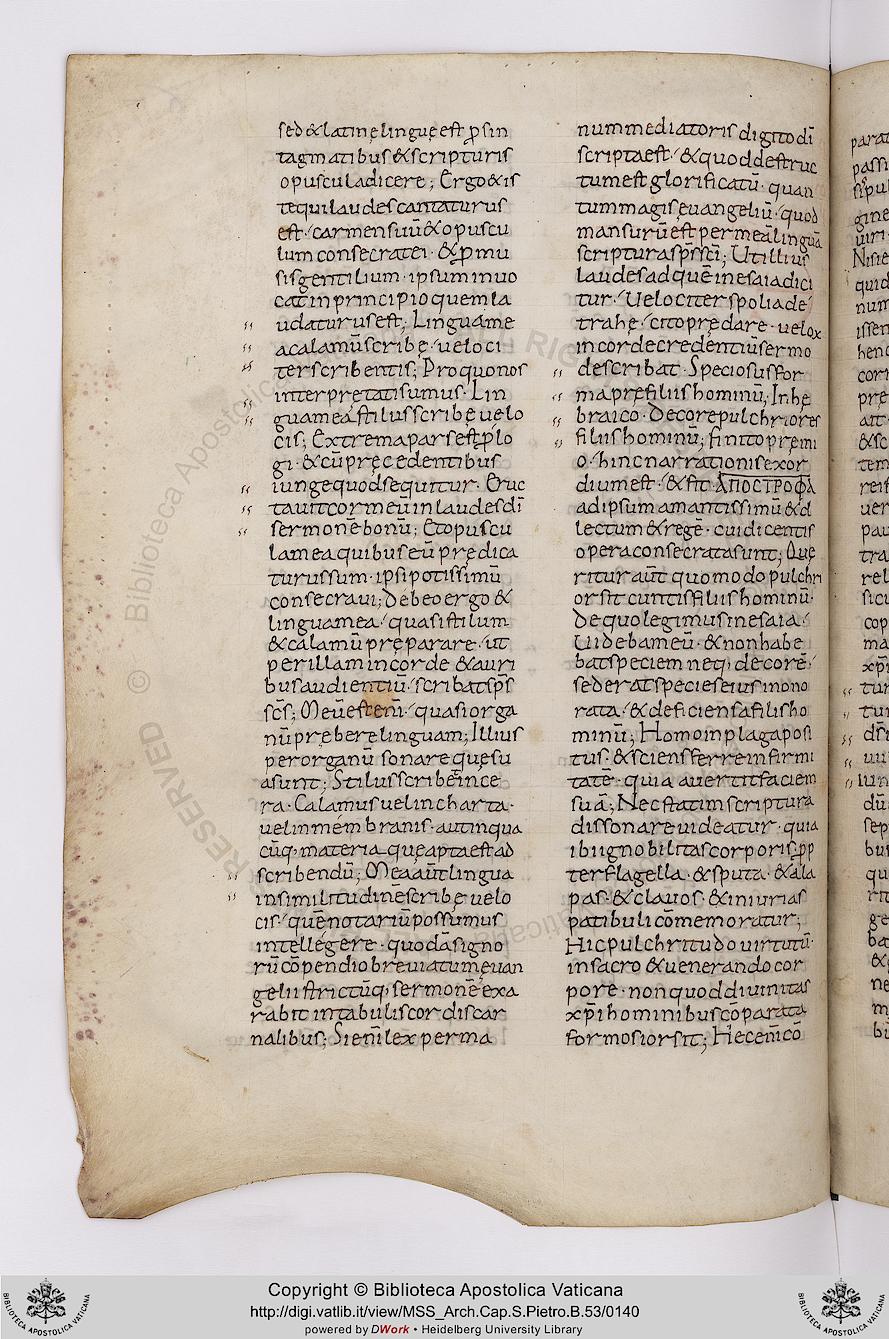 sed & latinę linguę est p̱ sin
tagmatibus & scripturis
opuscula dicere; Ergo & is
te qui laudes cantaturus
est · carmen suū & opuscu
lum consecrat ei · & p̱mu
sis gentilium · ipsum inuo
cat in principio quem la
udaturus est; Lingua me
a calamū scribę · ueloci
ter scribentis; Pro quo nos
interpretati sumus · Lin
gua mea stilus scribę uelo
cis; Extrema pars est p̱lo
gi · & cū pręcedentibus
iunge quod sequitur · Eruc
tauit cor meū in laudes dī
sermonē bonū; Et opuscu
la mea quibus eū prędica
turus sum · ipsi potissimū
consecraui; Debeo ergo &
lingua mea · quasi stilum
& calamū pręparare · ut
per illam in corde & auri
bus audientiū · scribat sp̄s
sc̄s; Meū est eni̅ · quasi orga
nū prębere linguam; Illius
per organū sonare quę su
a sunt; Stilus scribę in ce
ra · Calamus uel in charta ·
uel in membranis · aut in qua
cūq; materia quę apta est ad
scribendū; Mea aūt lingua
in similitudinē scribę uelo
cis · quē notariū possumus
intellegere · quodā signo
rū cōpendio breuiatum euan
gelii strictūq; sermonē exa
rabit in tabulis cordis car
nalibus; Si eni̅ lex per ma
num mediatoris digito dī
scripta est · & quod destruc
tum est glorificatū · quan
tum magis euangeliū · quod
mansurū est per meā linguā
scriptura sp̄s sc̄i; Ut illius
laudes ad quē in esaia dici
tur · Uelociter spolia de
trahe · cito prędare · uelox
in corde credentiū sermo
describat · Speciosus for
ma pre filiis hominū; In hę
braico · Decore pulchrior es
filiis hominū; finito pręmi
o · hinc narrationis exor
dium est · & fit · ΑΠΟCΤΡΟΦΑ
ad ipsum amantissimū & d
lectum & regē · cui dicentis
opera consecrata sunt; Quę
ritur aūt quomodo pulchri
or sit cunctis filiis hominū ·
De quo legimus in esaia ·
Uidebam eū · & non habe
bat speciem neq; decorē ·
sed erat species eius inono
rata · & deficiens a filis ho
minū; Homo in plaga posi
tus · & sciens ferre infirmi
tatē · quia auertit faciem
suā; Nec statim scriptura
dissonare uideatur · quia
ibi ignobilitas corporis · p̱p
ter flagella · & sputa · & ala
pas · & clauos · & iniurias
patibuli cōmemoratur;
Hic pulchritudo uirtutū ·
in sacro & uenerando cor
pore · non quod diuinitas
xp̄i hominibus cōparata
formosior sit; Hęc eni̅ cō
Copyright © Biblioteca Apostolica Vaticana
http://digi.vatlib.it/view/MSS_Arch.Cap.S.Pietro.B.53/0140
powered by DWork • Heidelberg University Library